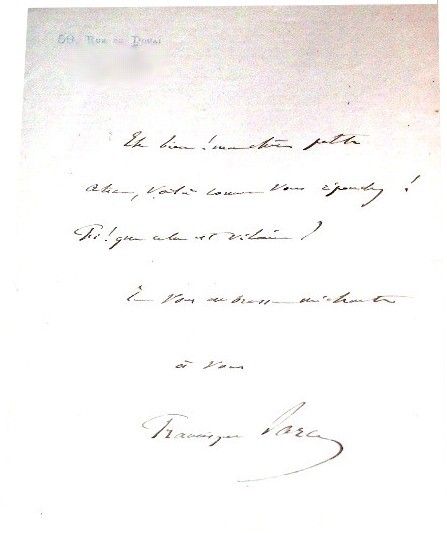 59, RUE DE DOUAI
Eh bien! ma chère petite
, voilà comme vous répondez!
Fi! que cela est vilain!
Je vous embrasse méchante
à vous
Francisque Sarcey